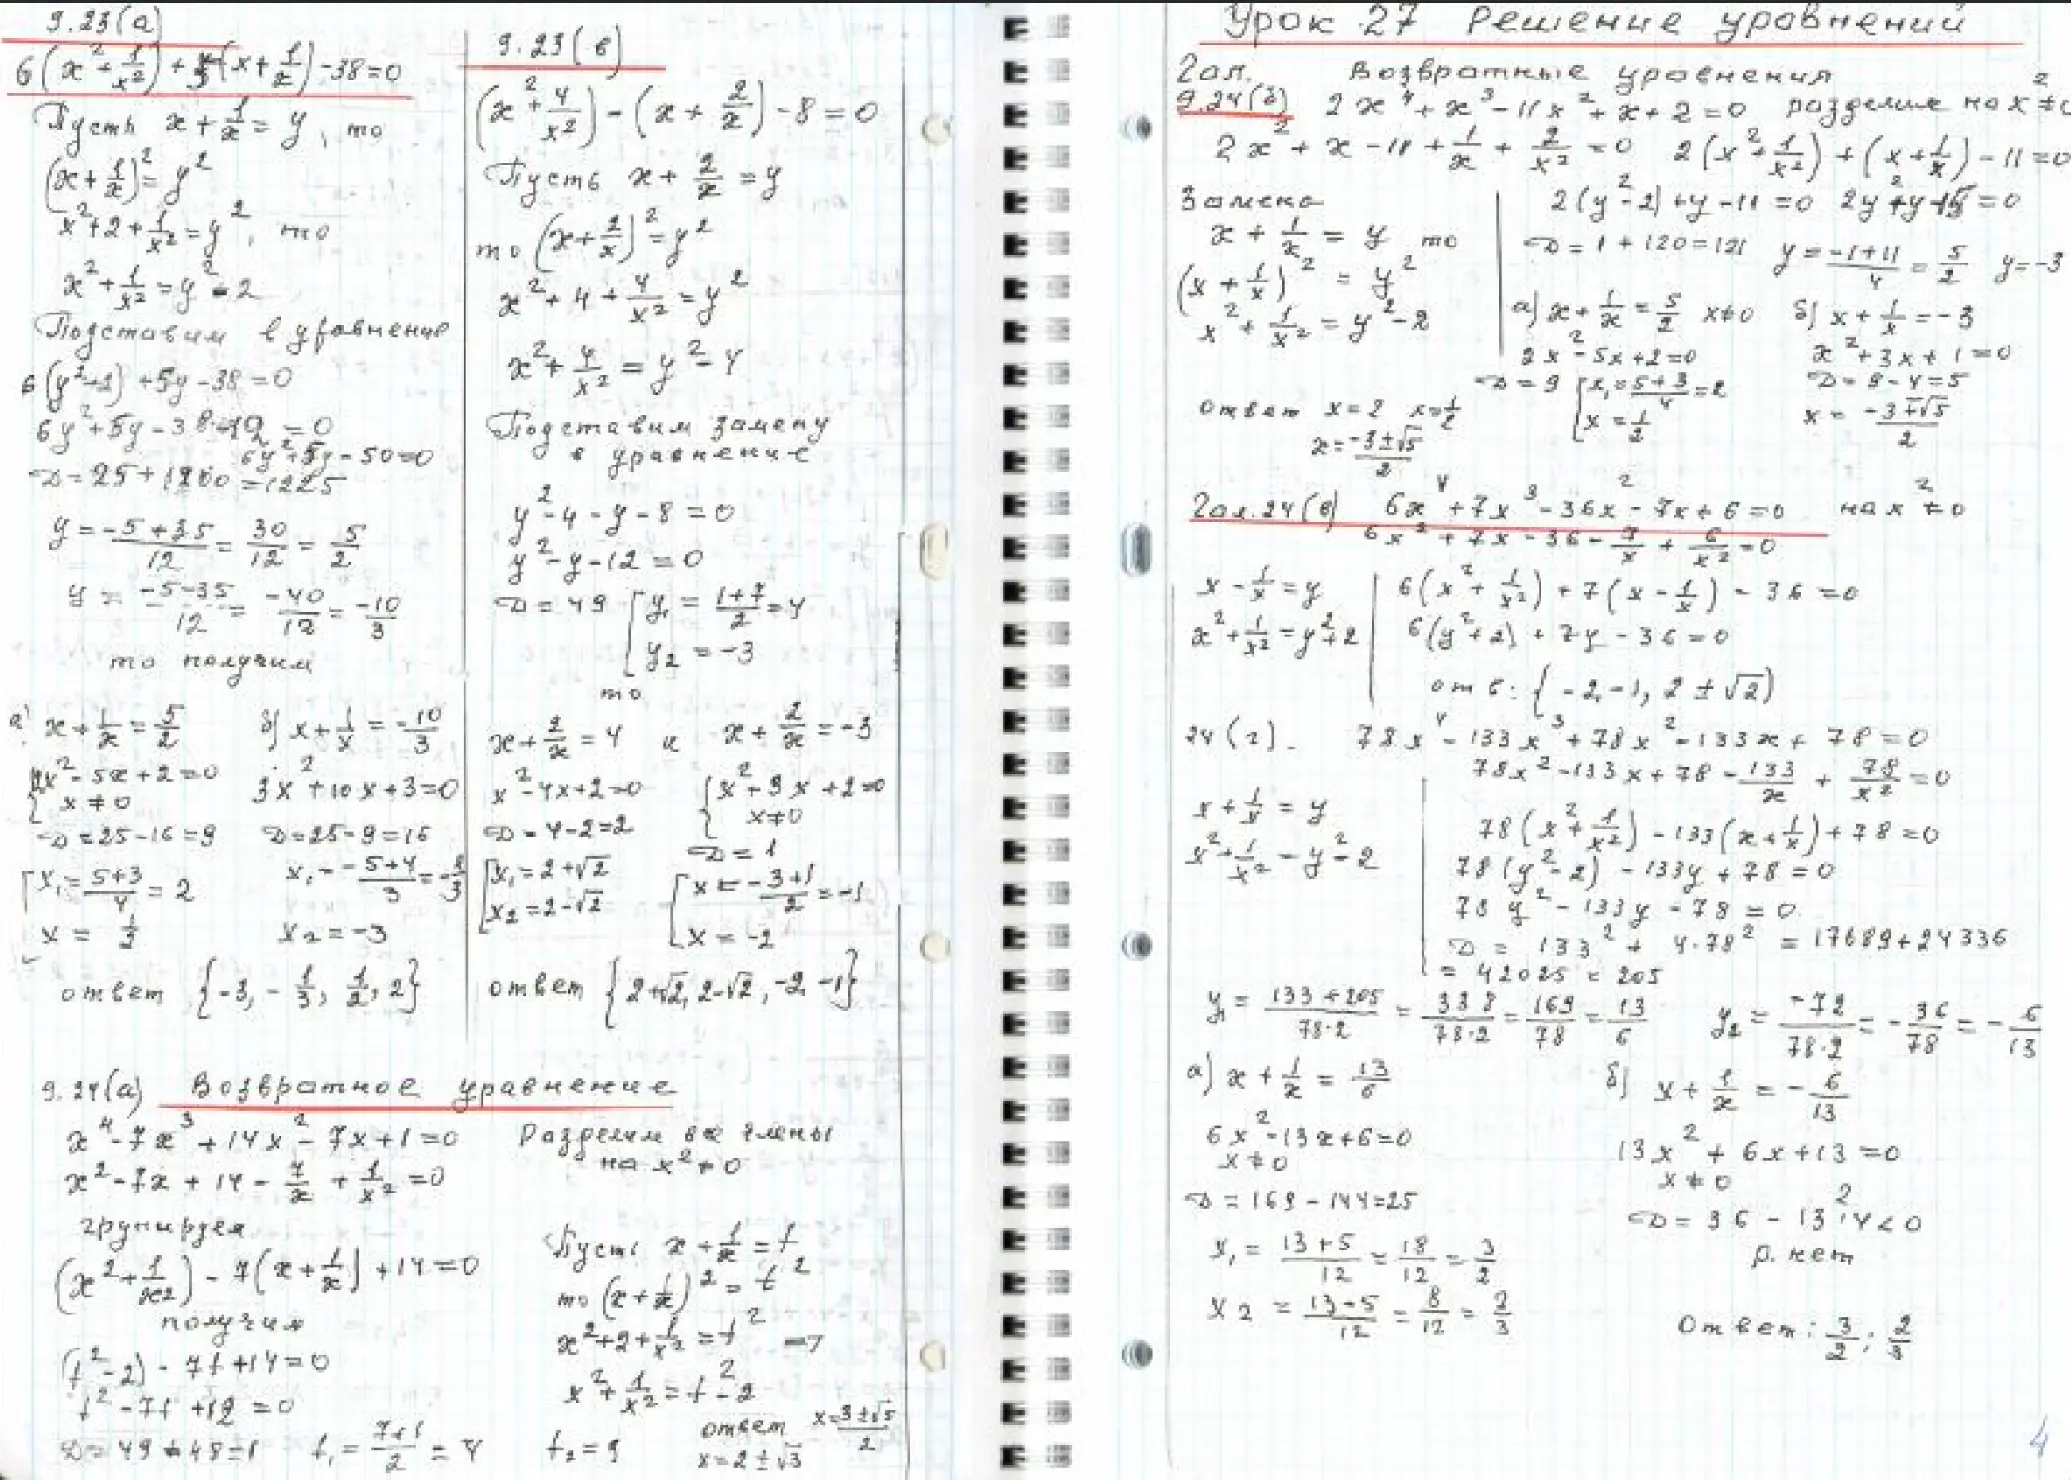 9.23(а)
6(x²+1/x²)+5(x+1/x)-38=0
Пусть x+1/x=y, то
(x+1/x)²=y²
x²+2+1/x²=y², то
x²+1/x²=y²-2
Подставим в уравнение
6(y²-2)+5y-38=0
6y²+5y-38-12=0
6y²+5y-50=0
D=25+1200=1225
y=(-5+35)/12=30/12=5/2
y=(-5-35)/12=-40/12=-10/3
то получим
а) x+1/x=5/2
2x²-5x+2=0
x≠0
D=25-16=9
x₁=(5+3)/4=2
x=1/2
б) x+1/x=-10/3
3x²+10x+3=0
D=25-9=16
x₁=(-5+4)/3=-1/3
x₂=-3
ответ {-3, -1/3, 1/2, 2}
9.23(в)
(x²+4/x²)-(x+2/x)-8=0
Пусть x+2/x=y
то (x+2/x)²=y²
x²+4+4/x²=y²
x²+4/x²=y²-4
Подставим замену
в уравнение
y²-4-y-8=0
y²-y-12=0
D=49 [y₁=(1+7)/2=4
y₂=-3
то
x+2/x=4 и x+2/x=-3
x²-4x+2=0
D=4-2=2
x₁=2+√2
x₂=2-√2
x²+3x+2=0
x≠0
D=1
x=(-3+1)/2=-1
x=-2
ответ {2+√2, 2-√2, -2, -1}
9.24(а) Возвратное уравнение
x⁴-7x³+14x²-7x+1=0 Разделим все члены
на x²≠0
x²-7x+14-7/x+1/x²=0
групируем
(x²+1/x²)-7(x+1/x)+14=0
получим
(t²-2)-7t+14=0
t²-7t+12=0
D=49-48=1 t₁=(7+1)/2=4 t₂=3
Пусть x+1/x=t
то (x+1/x)²=t²
x²+2+1/x²=t² ⇒
x²+1/x²=t²-2
ответ x=(3±√5)/2
x=2±√3
Урок 27 Решение уравнений
2ал. Возвратные уравнения
9.24(б) 2x⁴+x³-11x²+x+2=0 разделим на x²≠0
2x²+x-11+1/x+2/x²=0 2(x²+1/x²)+(x+1/x)-11=0
Замена
x+1/x=y то
(x+1/x)²=y²
x²+1/x²=y²-2
2(y²-2)+y-11=0 2y²+y-15=0
D=1+120=121 y=(-1+11)/4=5/2 y=-3
а) x+1/x=5/2 x≠0
2x²-5x+2=0
D=9 [x₁=(5+3)/4=2
x=1/2
б) x+1/x=-3
x²+3x+1=0
D=9-4=5
x=(-3∓√5)/2
ответ x=2 x=1/2
x=(-3±√5)/2
2ал.24(в) 6x⁴+7x³-36x²-7x+6=0 на x²≠0
6x²+7x-36-7/x+6/x²=0
x-1/x=y
x²+1/x²=y²+2
6(x²+1/x²)+7(x-1/x)-36=0
6(y²+2)+7y-36=0
отв: {-2,-1, 2±√2)
24(г). 78x⁴-133x³+78x²-133x+78=0
78x²-133x+78-133/x+78/x²=0
x+1/x=y
x²+1/x²=y²-2
78(x²+1/x²)-133(x+1/x)+78=0
78(y²-2)-133y+78=0
78y²-133y-78=0
D=133²+4·78²=17689+24336
=42025=205
y₁=(133+205)/(78·2)=338/(78·2)=169/78=13/6 y₂=-72/(78·2)=-36/78=-6/13
а) x+1/x=13/6
6x²-13x+6=0
x≠0
D=169-144=25
x₁=(13+5)/12=18/12=3/2
x₂=(13-5)/12=8/12=2/3
б) x+1/x=-6/13
13x²+6x+13=0
x≠0
D=36-13²·4<0
р. нет
Ответ: 3/2; 2/3
4